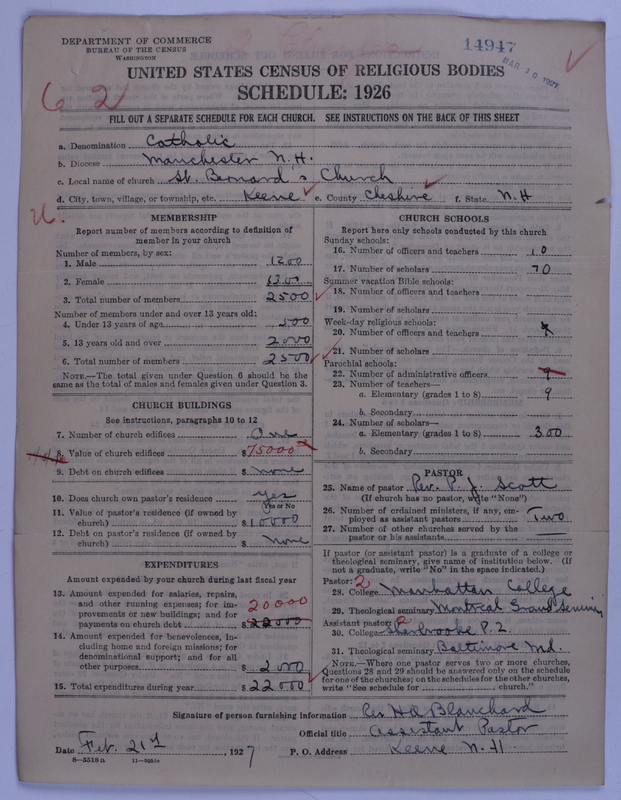 DEPARTMENT OF COMMERCE
BUREAU OF THE CENSUS
WASHINGTON
14947
MAR 10 1927
UNITED STATES CENSUS OF RELIGIOUS BODIES
SCHEDULE: 1926
62
FILL OUT A SEPARATE SCHEDULE FOR EACH CHURCH. SEE INSTRUCTIONS ON THE BACK OF THIS SHEET
a. Denomination Catholic
b. Diocese Manchester N.H.
c. Local name of church St. Bernard's Church
d. City, town, village, or township, etc. Keene e. County Cheshire f. State N.H
U.
MEMBERSHIP
Report number of members according to definition of
member in your church
Number of members, by sex:
1. Male 1200
2. Female 1300
3. Total number of members 2500
Number of members under and over 13 years old:
4. Under 13 years of age 500
5. 13 years old and over 2000
6. Total number of members 2500
NOTE.—The total given under Question 6 should be the
same as the total of males and females given under Question 3.
CHURCH BUILDINGS
See instructions, paragraphs 10 to 12
7. Number of church edifices One
8. Value of church edifices $75000
9. Debt on church edifices $ none
10. Does church own pastor's residence Yes
Yes or No
11. Value of pastor's residence (if owned by
church) $10000
12. Debt on pastor's residence (if owned by
church) $ none
EXPENDITURES
Amount expended by your church during last fiscal year
13. Amount expended for salaries, repairs,
and other running expenses; for im-
provements or new buildings; and for
payments on church debt $ 22000
20000
14. Amount expended for benevolences, in-
cluding home and foreign missions; for
denominational support; and for all
other purposes $ 2000
15. Total expenditures during year $ 22000
CHURCH SCHOOLS
Report here only schools conducted by this church
Sunday schools:
16. Number of officers and teachers 10
17. Number of scholars 70
Summer vacation Bible schools:
18. Number of officers and teachers
19. Number of scholars
Week-day religious schools:
20. Number of officers and teachers
21. Number of scholars
Parochial schools:
22. Number of administrative officers 9
23. Number of teachers—
a. Elementary (grades 1 to 8) 9
b. Secondary
24. Number of scholars—
a. Elementary (grades 1 to 8) 300
b. Secondary
PASTOR
25. Name of pastor Rev. P. J. Scott
(If church has no pastor, write "None")
26. Number of ordained ministers, if any, em-
ployed as assistant pastors Two
27. Number of other churches served by the
pastor or his assistants
If pastor (or assistant pastor) is a graduate of a college or
theological seminary, give name of institution below. (If
not a graduate, write "No" in the space indicated.)
Pastor: 2
28. College Manhattan College
29. Theological seminary Montreal Grand Seminary
Assistant pastor: 2
30. College Sherbrooke P.Q.
31. Theological seminary Baltimore Md.
NOTE.—Where one pastor serves two or more churches,
Questions 28 and 29 should be answered only on the schedule
for one of the churches; on the schedules for the other churches,
write "See schedule for church."
Signature of person furnishing information Rev H A Blanchard
Official title Assistant Pastor
Date Feb. 21st 1927 P. O. Address Keene N.H.
8—5518a